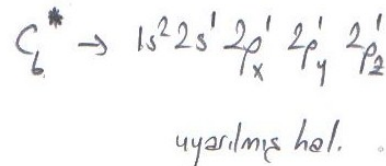 ₆C* → 1s² 2s¹ 2pₓ¹ 2p_y¹ 2p_z¹
uyarılmış hal.